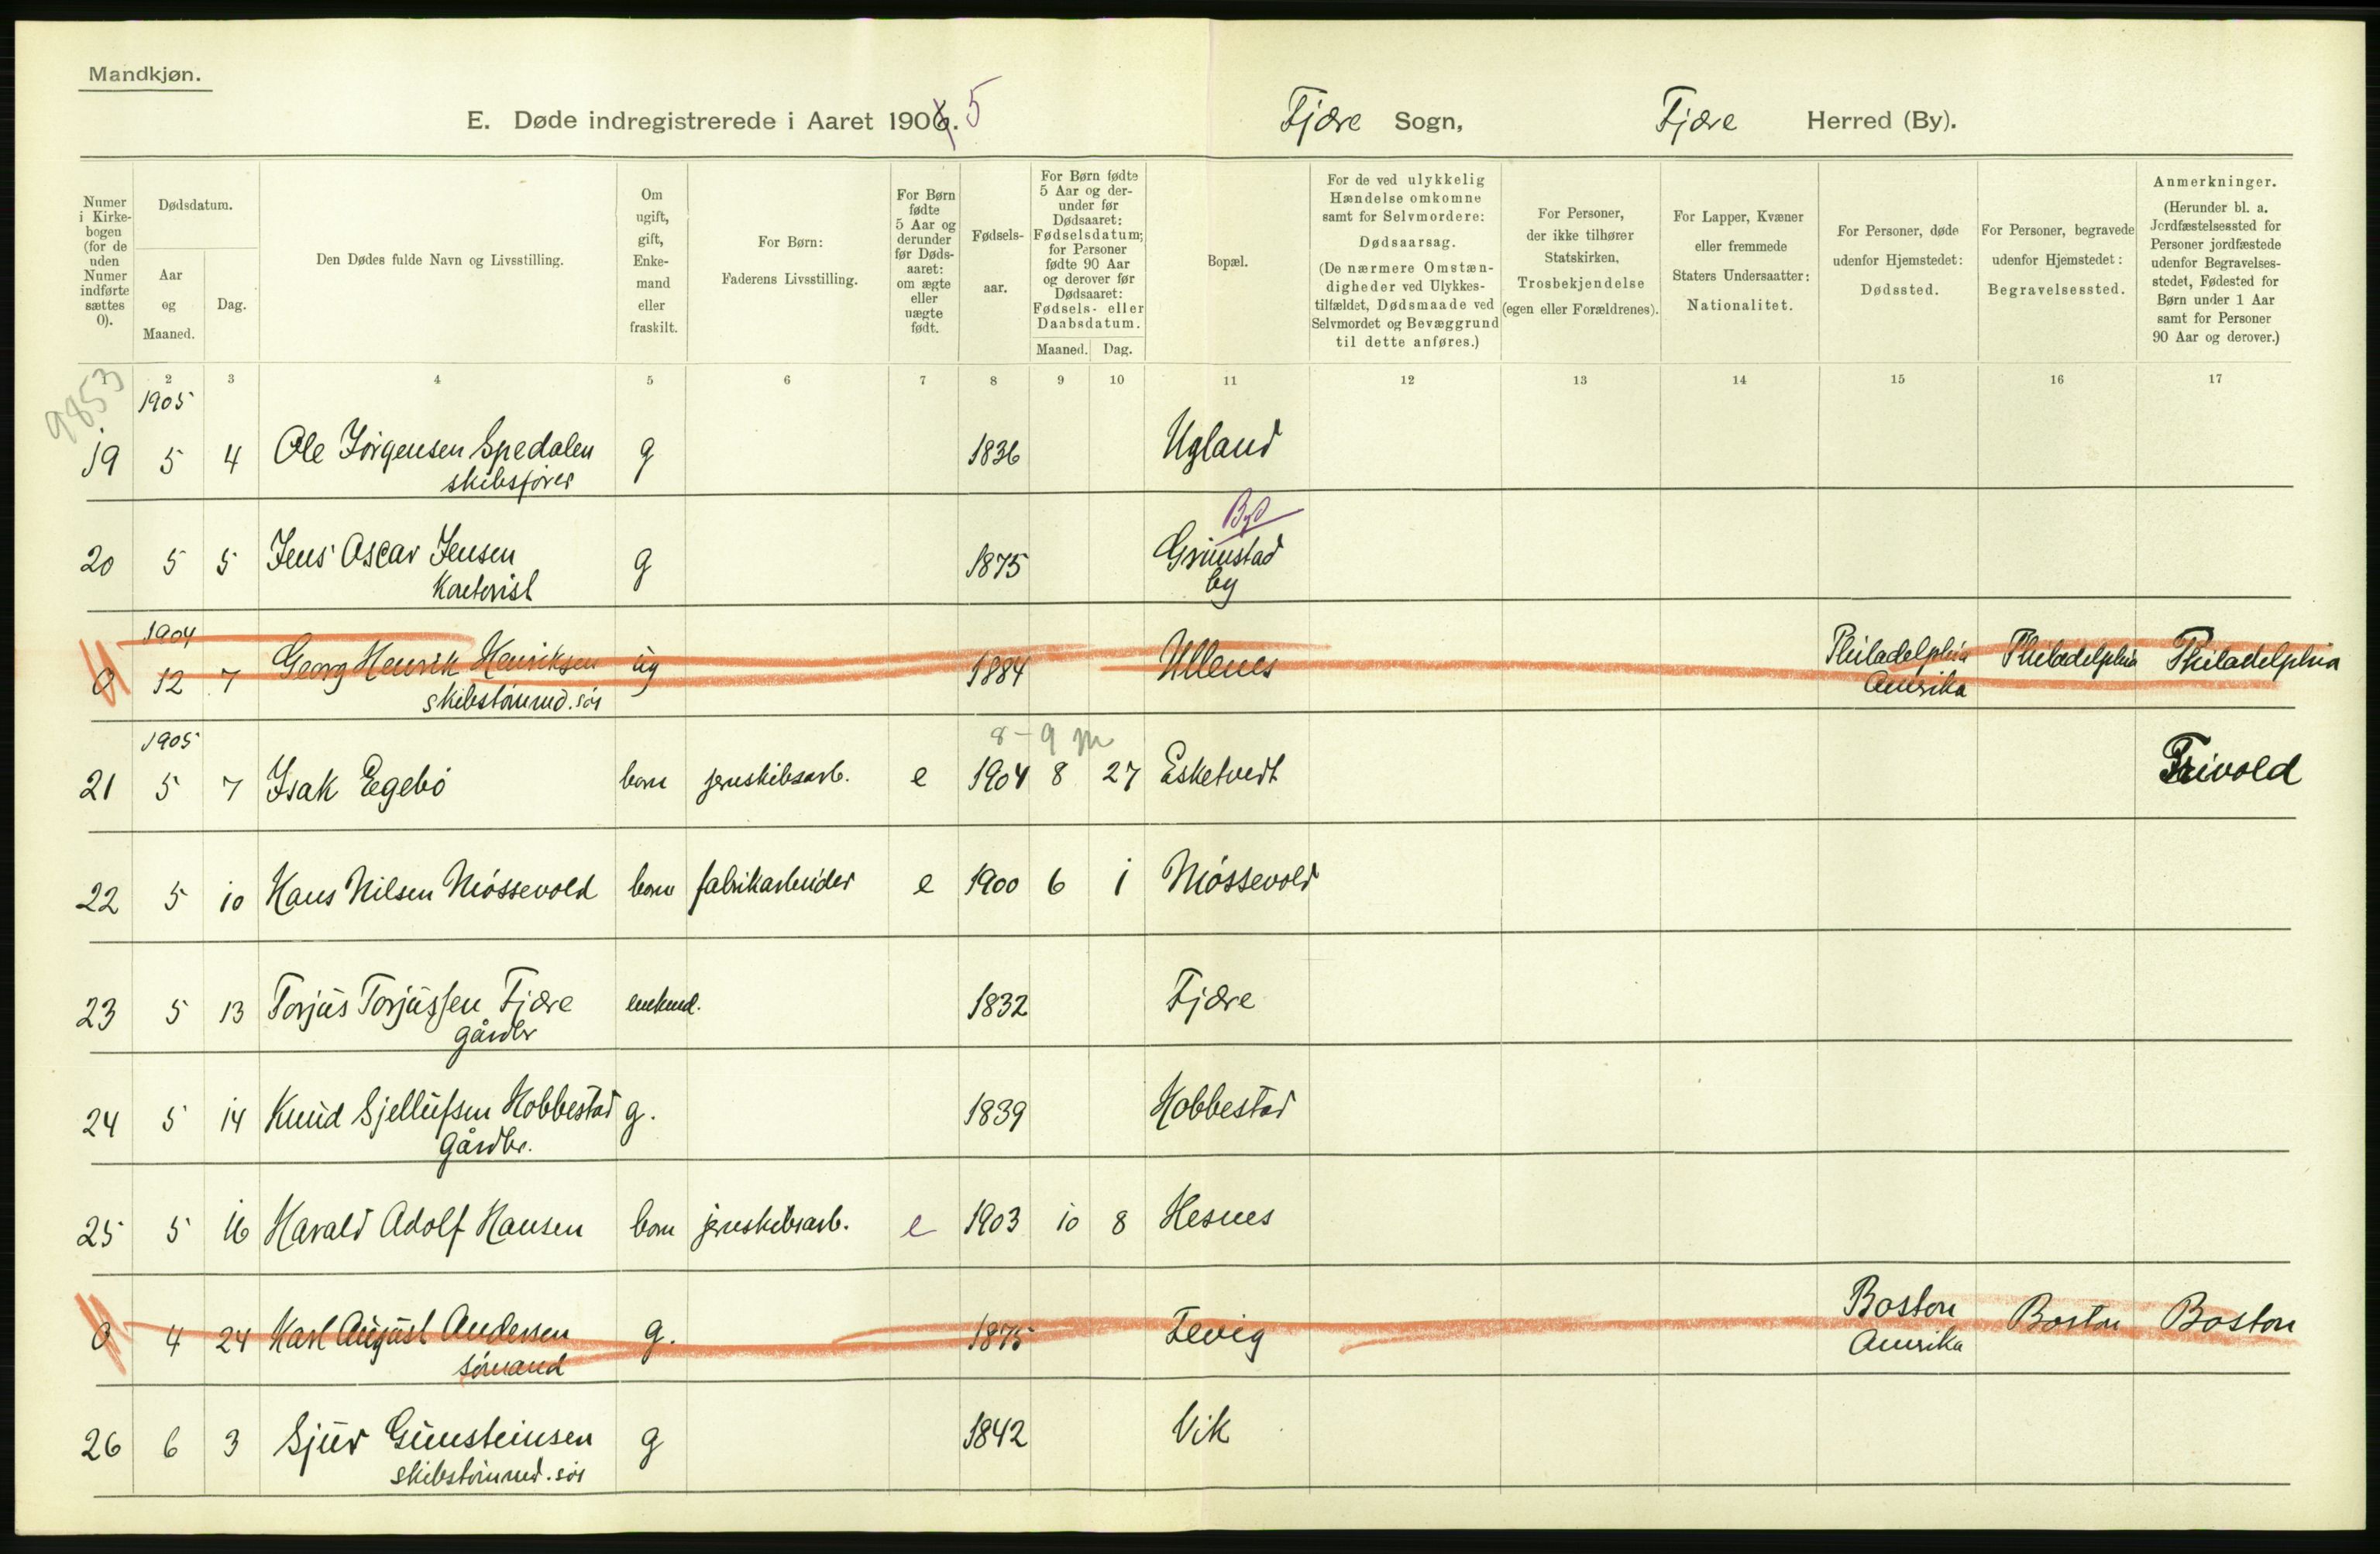 Mandkjøn.
E. Døde indregistrerede i Aaret 1906. 5 Fjære Sogn, Fjære Herred (By).
Numer i Kirke-bogen (for de uden Numer indførte sættes 0).
Dødsdatum.
Aar og Maaned.
Dag.
Den Dødes fulde Navn og Livsstilling.
Om ugift, gift, Enke-mand eller fraskilt.
For Børn: Faderens Livsstilling.
For Børn fødte 5 Aar og derunder før Døds-aaret: om ægte eller uægte født.
Fødsels-aar.
For Børn fødte 5 Aar og der-under før Dødsaaret: Fødselsdatum; for Personer fødte 90 Aar og derover før Dødsaaret: Fødsels- eller Daabsdatum.
Maaned. Dag.
Bopæl.
For de ved ulykkelig Hændelse omkomne samt for Selvmordere: Dødsaarsag. (De nærmere Omstæn-digheder ved Ulykkes-tilfældet, Dødsmaade ved Selvmordet og Bevæggrund til dette anføres.)
For Personer, der ikke tilhører Statskirken, Trosbekjendelse (egen eller Forældrenes).
For Lapper, Kvæner eller fremmede Staters Undersaatter: Nationalitet.
For Personer, døde udenfor Hjemstedet: Dødssted.
For Personer, begravede udenfor Hjemstedet: Begravelsessted.
Anmerkninger. (Herunder bl. a. Jordfæstelsessted for Personer jordfæstede udenfor Begravelses-stedet, Fødested for Børn under 1 Aar samt for Personer 90 Aar og derover.)
2 3 4 5 6 7 8 9 10 11 12 13 14 15 16 17
9853
1905
19 5 4 Ole Jørgensen Spedalen g 1836 Ugland
skibsfører
By
20 5 5 Jens Oscar Jensen g 1875 Grimstad
Kontorist by
1904
0 12 7 Georg Henrik Henriksen ug 1884 Ullenes Philadelphia Philadelphia Philadelphia
skibstømmd. søn Amerika
1905
8 - 9 m
21 5 7 Isak Egebö barn jernskibsarb. e 1904 8 27 Esketvedt Frivold
22 5 10 Hans Nilsen Møssevold barn fabrikarbeider e 1900 6 1 Møssevold
23 5 13 Torjus Torjussen Fjære enkemd. 1832 Fjære
gårdbr
24 5 14 Knud Sjellufsen Hobbestad g. 1839 Hobbestad
Gårdbr.
25 5 16 Harald Adolf Hansen barn jernskibsarb. e 1903 10 8 Hesnes
0 4 24 Karl August Andersen g. 1875 Fevig Boston Boston Boston
sømand Amerika
26 6 3 Sjur Gunsteinsen g 1842 Vik
skibstømmd. søn